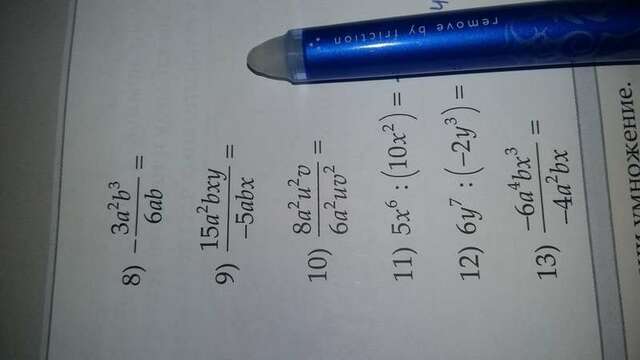 remove by friction
8) -\frac{3a^2b^3}{6ab} =
9) \frac{15a^2bxy}{-5abx} =
10) \frac{8a^2u^2v}{6a^2uv^2} =
11) 5x^6 : (10x^2) =
12) 6y^7 : (-2y^3) =
13) \frac{-6a^4bx^3}{-4a^2bx} =
умножение.